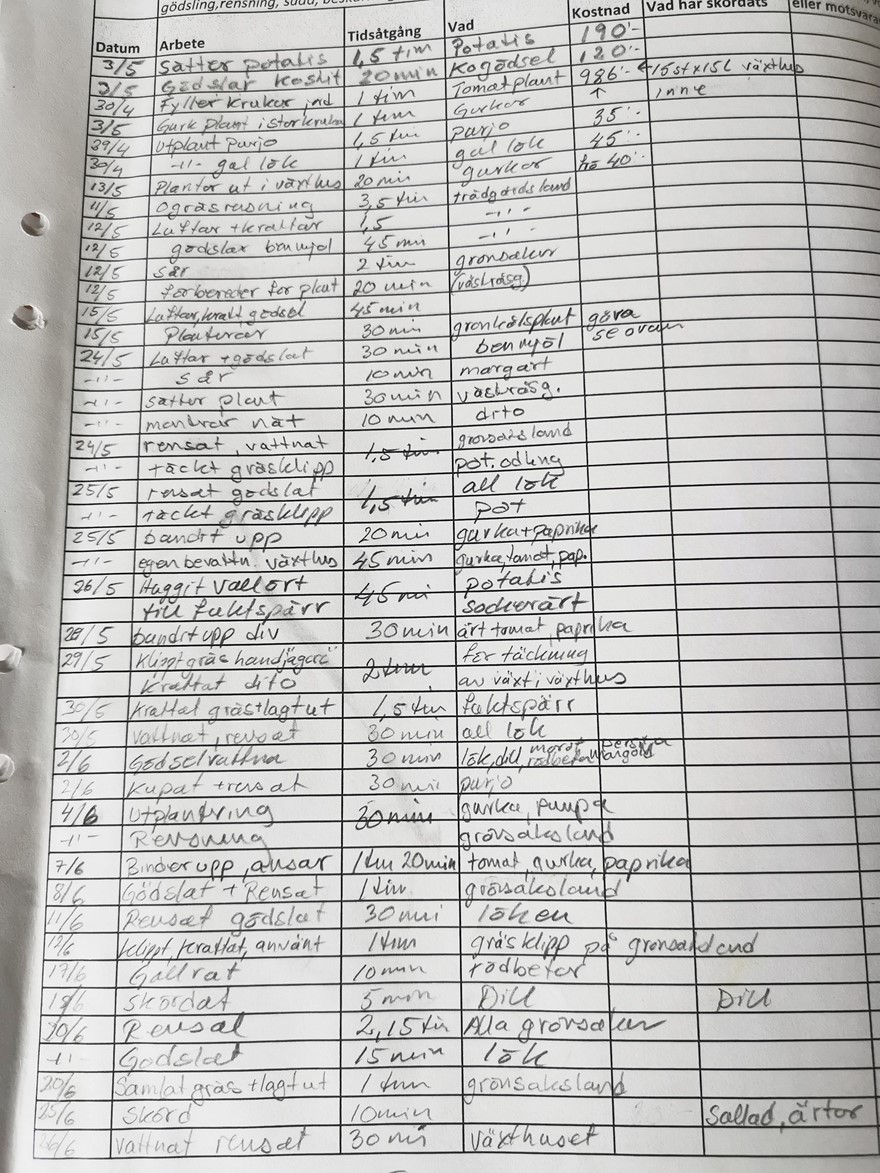 gödsling, rensning, sådd,
Datum Arbete Tidsåtgång Vad Kostnad Vad har skördats eller motsvara
3/5 Sätter potatis 1,5 tim Potatis 190:-
3/5 Gödslar koskit 20 min Kogödsel 120:-
30/4 Fyller krukor, jord 1 tim Tomatplant 986:- ← 15 st x 15 L växthus
3/5 Gurkplant i stor kruka 1 tim Gurkor ↑ inne
29/4 Utplant purjo 1,5 tim purjo 35:-
30/4 -"- gul lök 1 tim gul lök 45:-
13/5 Plantor ut i växthus 20 min gurkor frö 40:-
11/5 Ogräsrensning 3,5 tim trädgårdsland
12/5 Luftar + krattar 1,5 -"-
12/5 gödslar benmjöl 45 min -"-
12/5 sår 2 tim grönsaker
12/5 förbereder för plant 20 min (växtväsg)
15/5 Luftar, kratt, gödsel 45 min
15/5 Planterar 30 min grönkålsplant göra
24/5 Luftar + gödslat 30 min benmjöl se ovan
-"- sår 10 min margärt
-"- sätter plant 30 min
-"- monterar nät 10 min dito
24/5 rensat, vattnat 1,5 tim grönsaksland
-"- täckt gräsklipp pot.odling
25/5 rensat gödslat 1,5 tim all lök
-"- täckt gräsklipp pot
25/5 bandit upp 20 min gurka + paprika
-"- egenbevattn. växthus 45 min gurka, tomat, pap.
26/5 Huggit vallört 45 min potatis
till fuktspärr sockerärt
28/5 bandit upp div 30 min ärt tomat, paprika
29/5 Klippt gräs handjägare 2 tim för täckning
Krattat dito av växt i växthus
30/5 Krattat gräs + lagt ut 1,5 tim fuktspärr
30/5 vattnat, rensat 30 min all lök
2/6 Gödselvattna 30 min lök, dill, morot persilja rödbetor, mangold
2/6 Kupat + rensat 30 min purjo
4/6 Utplantring 30 min gurka, pumpa
-"- Rensning grönsaksland
7/6 Binder upp, ansar 1 tim 20 min tomat, gurka, paprika
8/6 Gödslat + Rensat 1 tim grönsaksland
11/6 Rensat gödslat 30 min löken
12/6 klippt, krattat, använt 1 tim gräsklipp på grönsaksland
17/6 Gallrat 10 min rödbetor
18/6 skördat 5 min Dill Dill
20/6 Rensat 2,15 tim Alla grönsaker
-"- Gödslat 15 min lök
20/6 Samlat gräs + lagt ut 1 tim grönsaksland
25/6 Skörd 10 min Sallad, ärtor
26/6 vattnat rensat 30 min växthuset